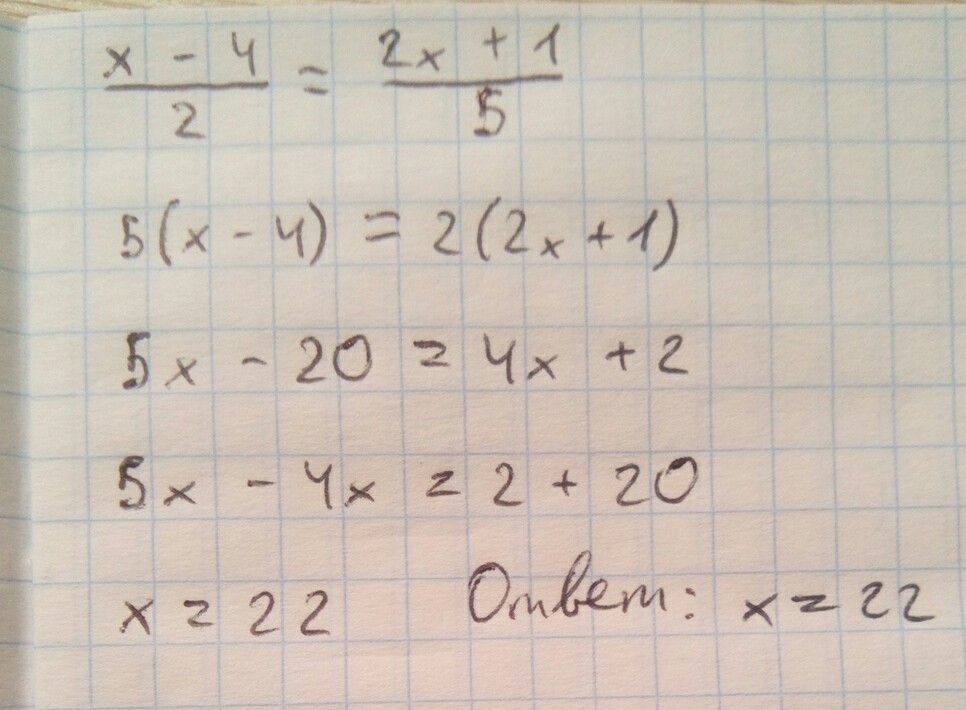 x - 4 / 2 = 2x + 1 / 5
5(x - 4) = 2(2x + 1)
5x - 20 = 4x + 2
5x - 4x = 2 + 20
x = 22 Ответ: x = 22